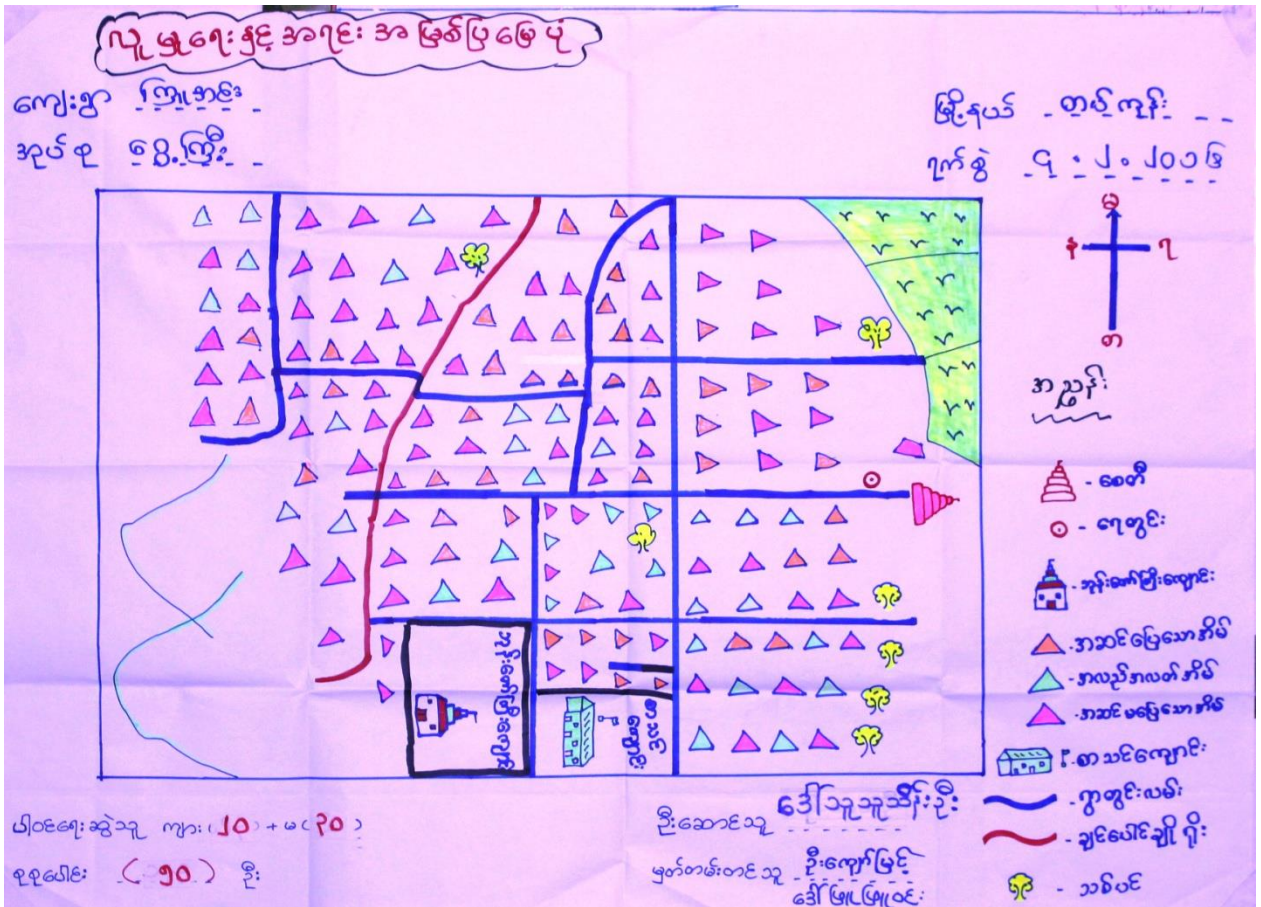 လူမှုရေးနှင့်အရင်းအမြစ်ပြမြေပုံ
ကျေးရွာ ကြူအင်း
အုပ်စု ရွှေကြိုး
မြို့နယ် တပ်ကုန်း
ရက်စွဲ ၄.၂.၂၀၁၆
မ
န ရ
တ
အညွှန်း
- စေတီ
- ရေတွင်း
- ဘုန်းတော်ကြီးကျောင်း
- အဆင်ပြေသောအိမ်
- အလည်အလတ်အိမ်
- အဆင်မပြေသောအိမ်
- စာသင်ကျောင်း
- ရွာတွင်းလမ်း
- ချင်းပေါင်ချို ရိုး
- သစ်ပင်
ဘုန်းတော်ကြီးကျောင်း
ပါဝင်ရေးဆွဲသူ ကျား(၂၀) + မ(၃၀)
စုစုပေါင်း (၅၀) ဦး
ဦးဆောင်သူ ဒေါ်သူသူသိန်းဦး
မှတ်တမ်းတင်သူ ဦးကျော်မြင့်
ဒေါ်ဖြူဖြူဝင်း